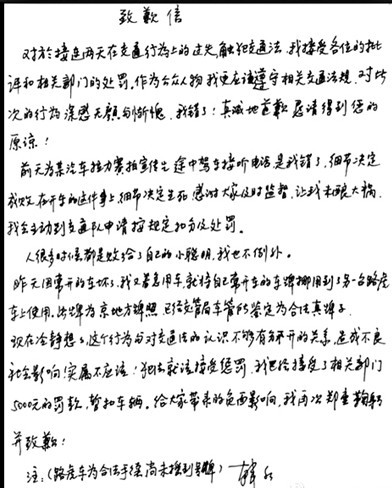 致歉信
对於接连两天在交通行为上的过失,触犯交通法,我接受各位的批
评和相关部门的处罚。作为公众人物我更应该遵守相关交通法规,对此
次的行为深感无颜与惭愧。我错了!真诚地道歉恳请得到您的
原谅!
前天为某汽车接力赛拍宣传片途中驾车接听电话是我错了,细节决定
成败,在开车的这件事上细节决定生死,感谢大家及时监督,让我未酿大祸,
我会主动到交通队申请按规定扣分及处罚。
人很多时候都是败给了自己的小聪明,我也不例外。
昨天因常开的车坏了,我又着急用车,就将自己常开车的车牌挪用到了另一台路虎
车上使用。此牌为京地方牌照,已经交管局车管所鉴定为合法真牌子。
现在冷静想了,这个行为与对交通法的认识不够有分不开的关系,造成不良
社会影响!实属不应该!犯法就该接受惩罚,我已经接受了相关部门
5000元的罚款,暂扣车辆。给大家带来的负面影响,我再次郑重鞠躬
并致歉!
注:(路虎车为合法手续尚未接到号牌)